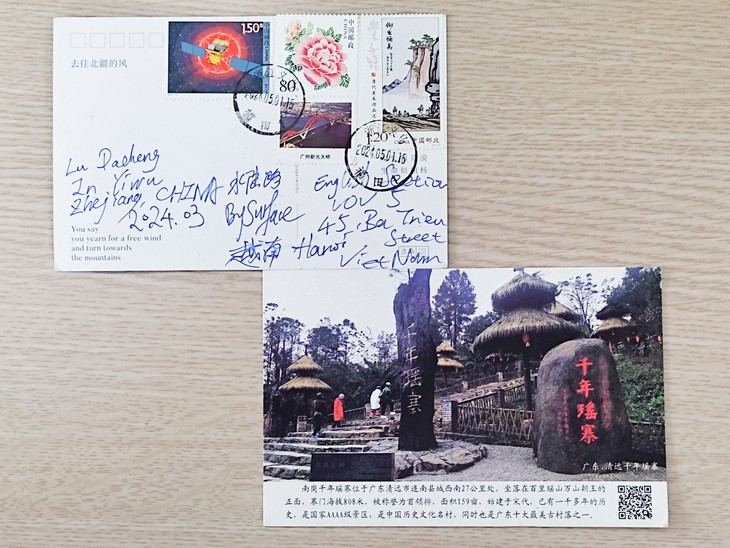 150分
中国邮政
80
仰生綠萬
1.20元
中国邮政
去往北疆的风
广州新光大桥
2024.05.01.15
2024.05.01.15
Lu Dacheng
In Yiwu
Zhejiang, CHINA
2024.03
水陆路
By Surface
越南 Hanoi
English Section
VOV 5
45, Ba Trieu
Street
Viet Nam
You say
you yearn for a free wind
and turn towards
the mountains
千年瑶寨
千年瑶寨
广东·清远千年瑶寨
南岗千年瑶寨位于广东清远市连南县城西南27公里处，坐落在百里瑶山万山朝王的
正面，寨门海拔808米，被称誉为首领排，面积159亩，始建于宋代，已有一千多年的历
史，是国家AAAA级景区，是中国历史文化名村，同时也是广东十大最美古村落之一。